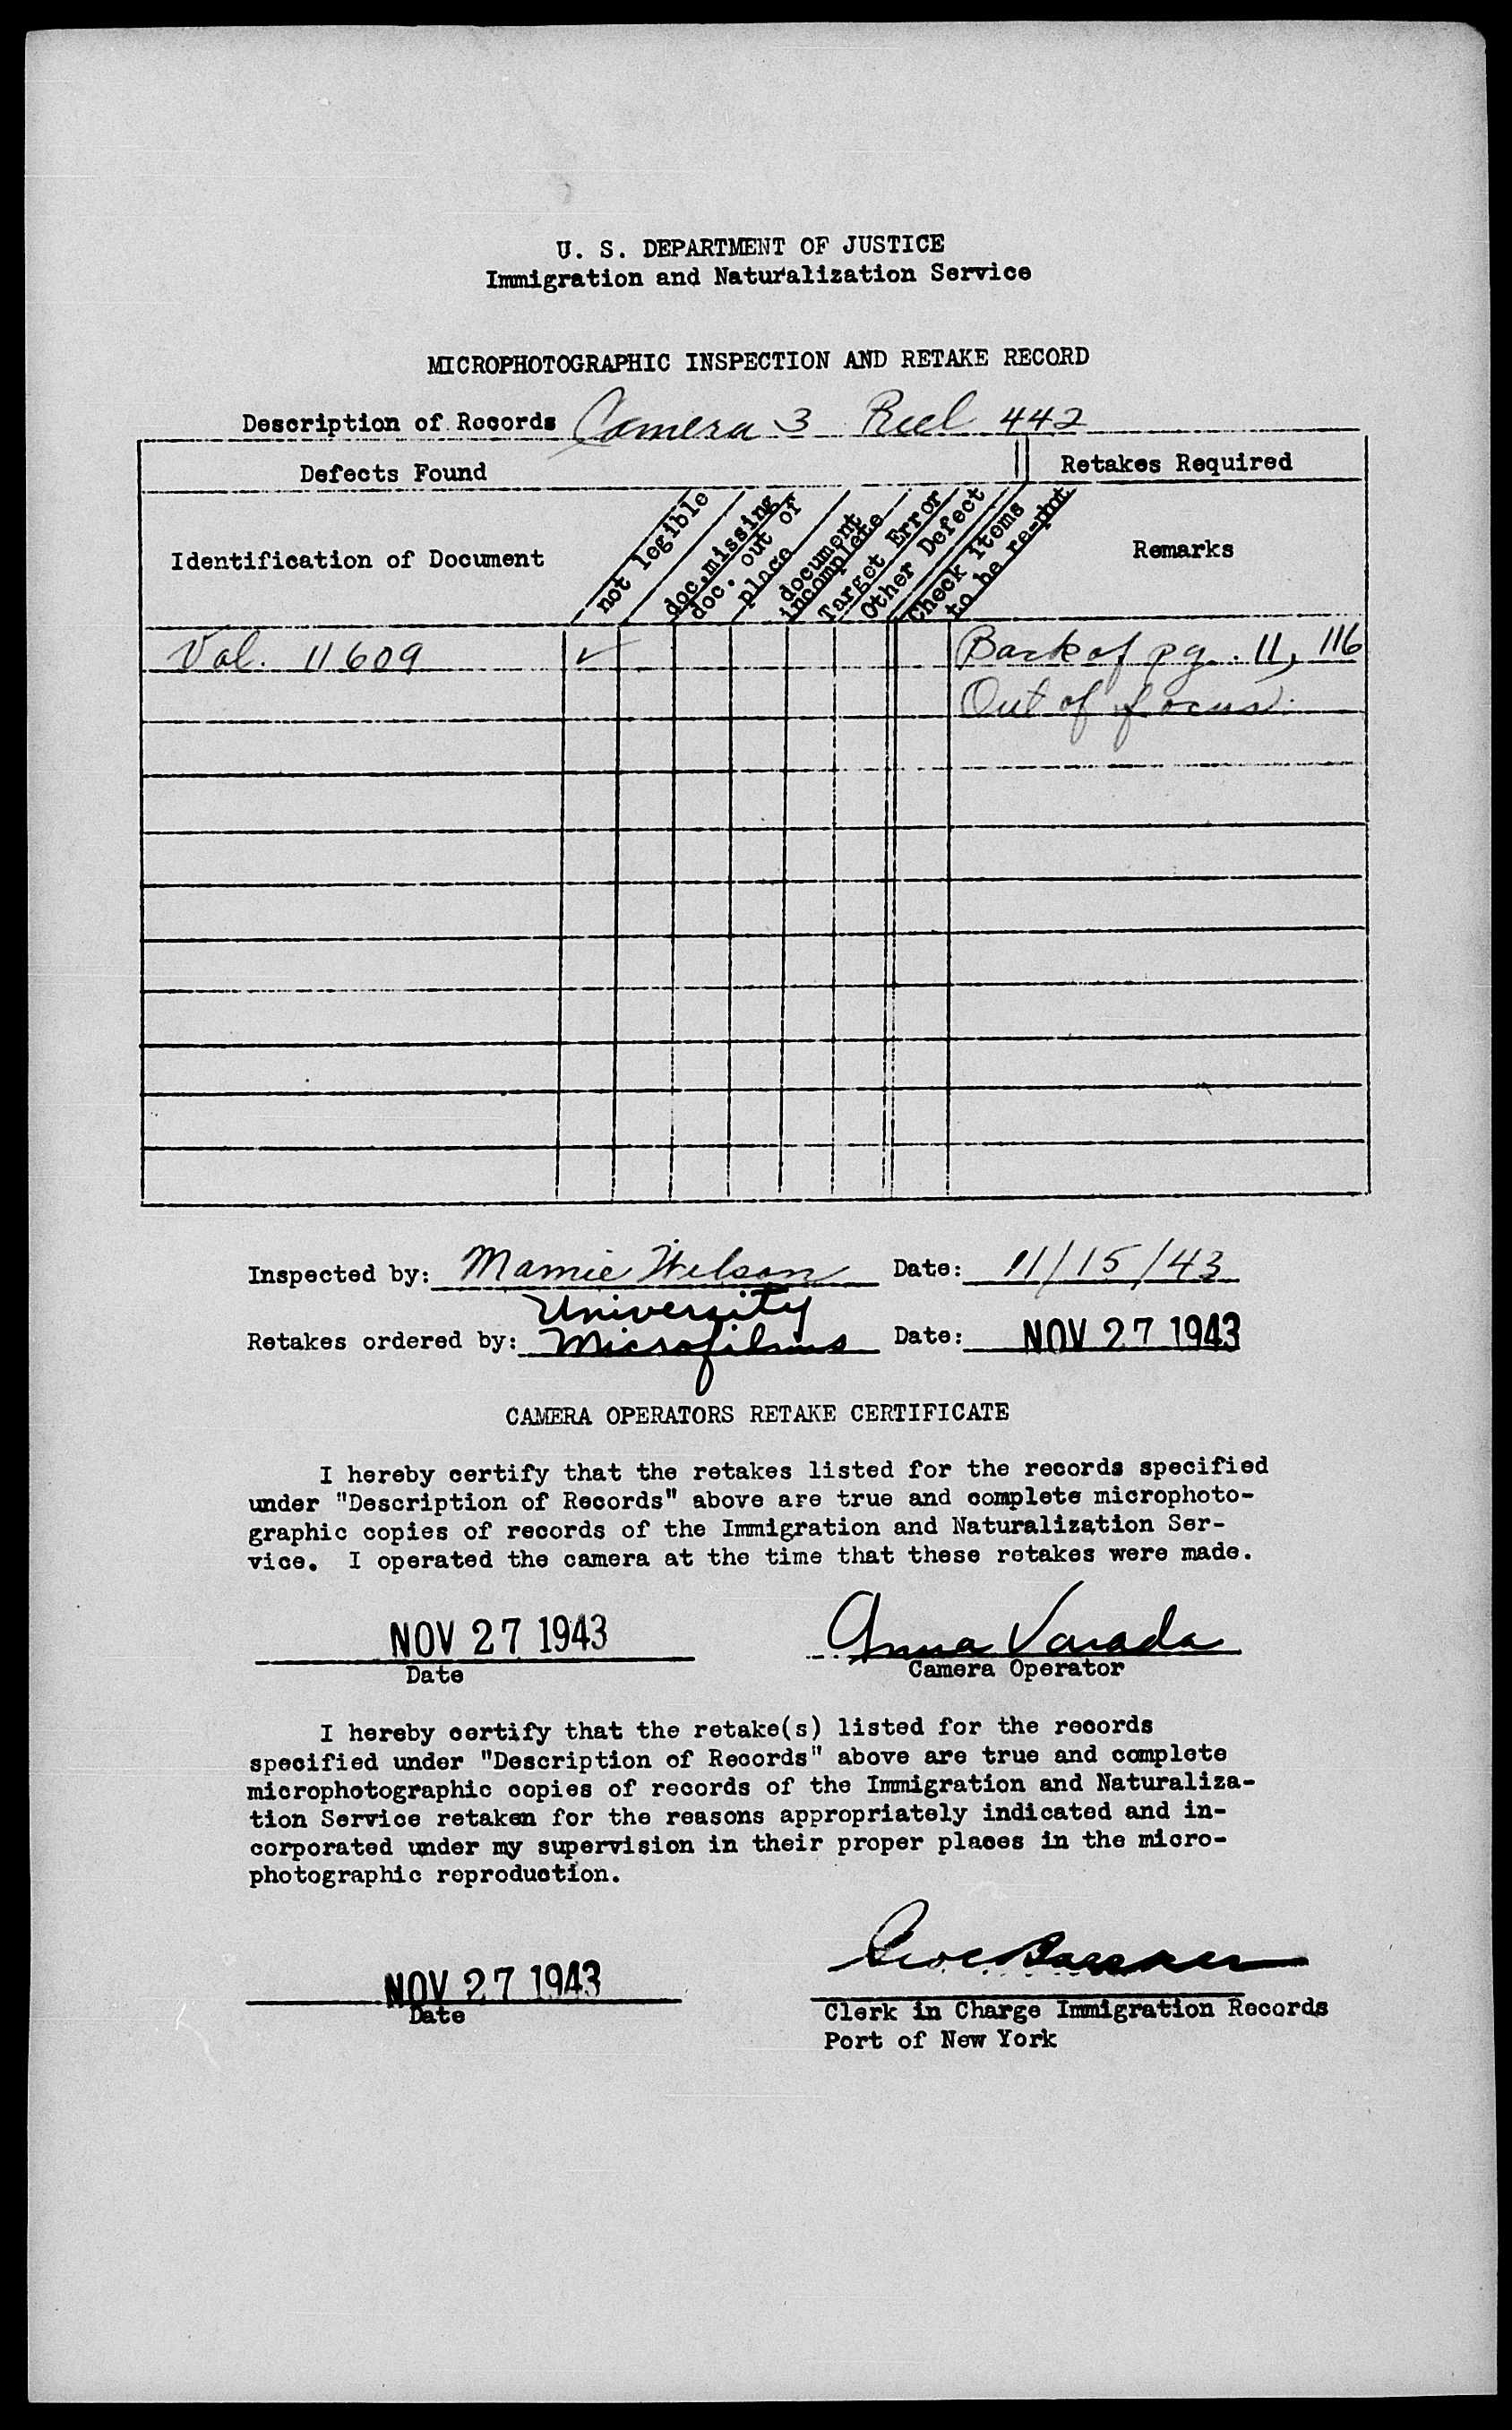 U. S. DEPARTMENT OF JUSTICE
Immigration and Naturalization Service
MICROPHOTOGRAPHIC INSPECTION AND RETAKE RECORD
Description of Records Camera 3 Reel 442
Defects Found Retakes Required
Identification of Document
not legible
doc. missing
doc. out of
place
document
incomplete
Target Error
Other Defect
Check items
to be re-phot
Remarks
Vol. 11609 ✓ Back of pg. 11, 116
Out of focus.
Inspected by: Mamie Wilson Date: 11/15/43
University
Retakes ordered by: Microfilms Date: NOV 27 1943
CAMERA OPERATORS RETAKE CERTIFICATE
I hereby certify that the retakes listed for the records specified
under "Description of Records" above are true and complete microphoto-
graphic copies of records of the Immigration and Naturalization Ser-
vice. I operated the camera at the time that these retakes were made.
NOV 27 1943 Anna Varada
Date Camera Operator
I hereby certify that the retake(s) listed for the records
specified under "Description of Records" above are true and complete
microphotographic copies of records of the Immigration and Naturaliza-
tion Service retaken for the reasons appropriately indicated and in-
corporated under my supervision in their proper places in the micro-
photographic reproduction.
NOV 27 1943
Date Clerk in Charge Immigration Records
Port of New York